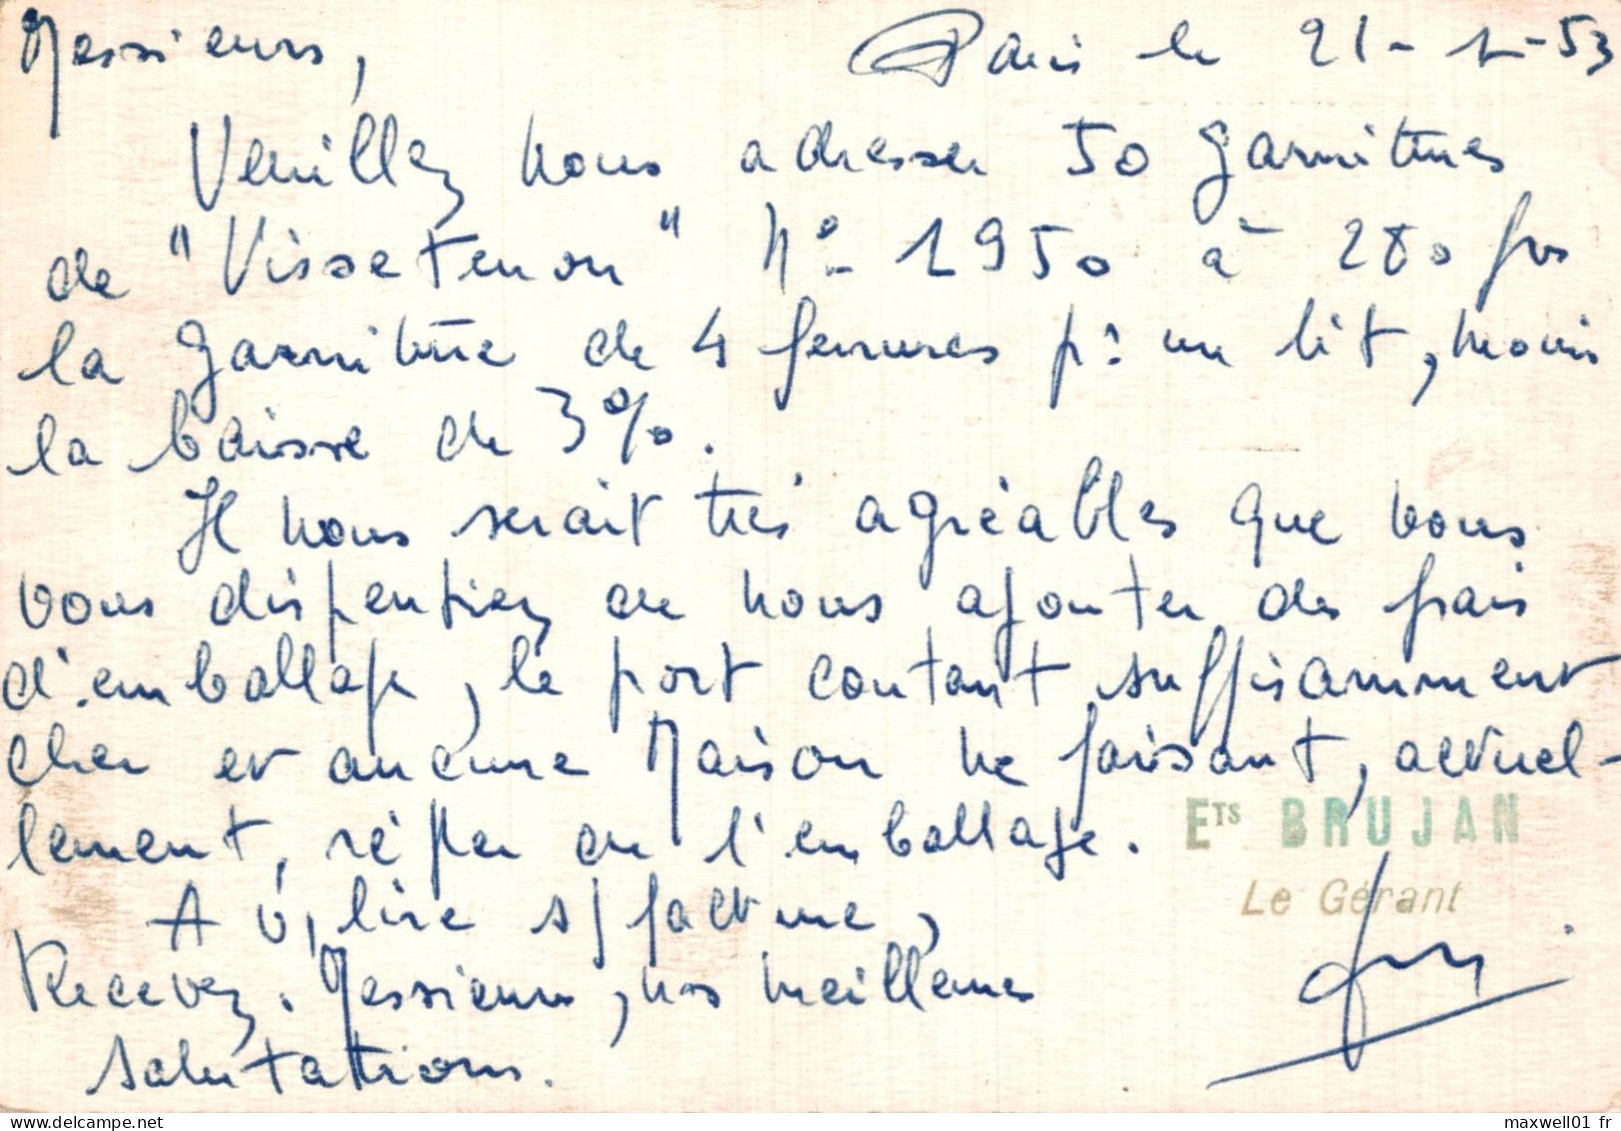 Messieurs,
Paris le 21-1-53
Veuillez nous adresser 50 garnitures
de "Vissetenon" N° 1950 à 280 frs
la garniture de 4 ferrures pr un lit, moins
la baisse de 3%.
Il nous serait très agréables que vous
vous dispensiez de nous ajouter des frais
d'emballage, le port coutant suffisamment
cher et aucune Maison ne faisant, actuel-
lement, régler de l'emballage.
ETS BRUJAN
Le Gérant
A v/ lire s/ facture,
Recevez, Messieurs, nos meilleures
salutations.
maxwell01 fr